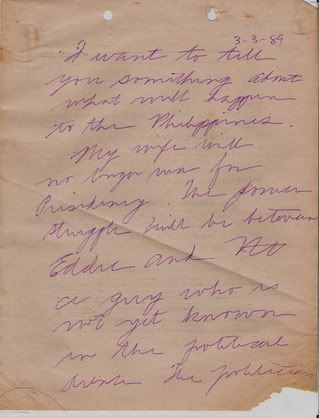 3-3-89
I want to tell
you something about
what will happen
to the Philippines.
My wife will
no longer run for
Presidency. The power
struggle will be between
Eddie and
a guy who is
not yet known
in the political
arena. The politician